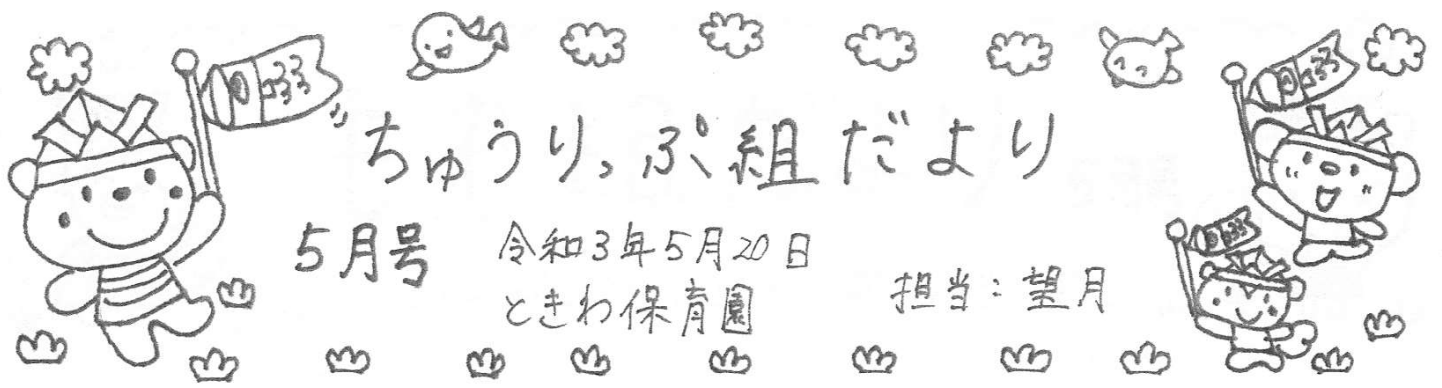 ちゅうりっぷ組だより
5月号
令和3年5月20日
ときわ保育園
担当：望月